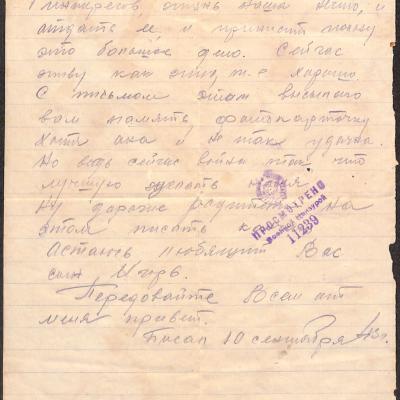 отдать ее и принисти пользу
это большое дело. Сейчас
живу как т.е хорошо.
С письмом этим высылаю
вам память фотокарточку
Хотя она и не так удачна.
Но ведь сейчас война так что
лучшую сделать нельзя
Ну дорогие родители на
этом писать
Остаюсь любящий Вас
сын Игорь.
Передовайте Всем от
меня привет.
Писал 10 сентября 43г.
ПРОСМОТРЕНО
Военной Цензурой
11239